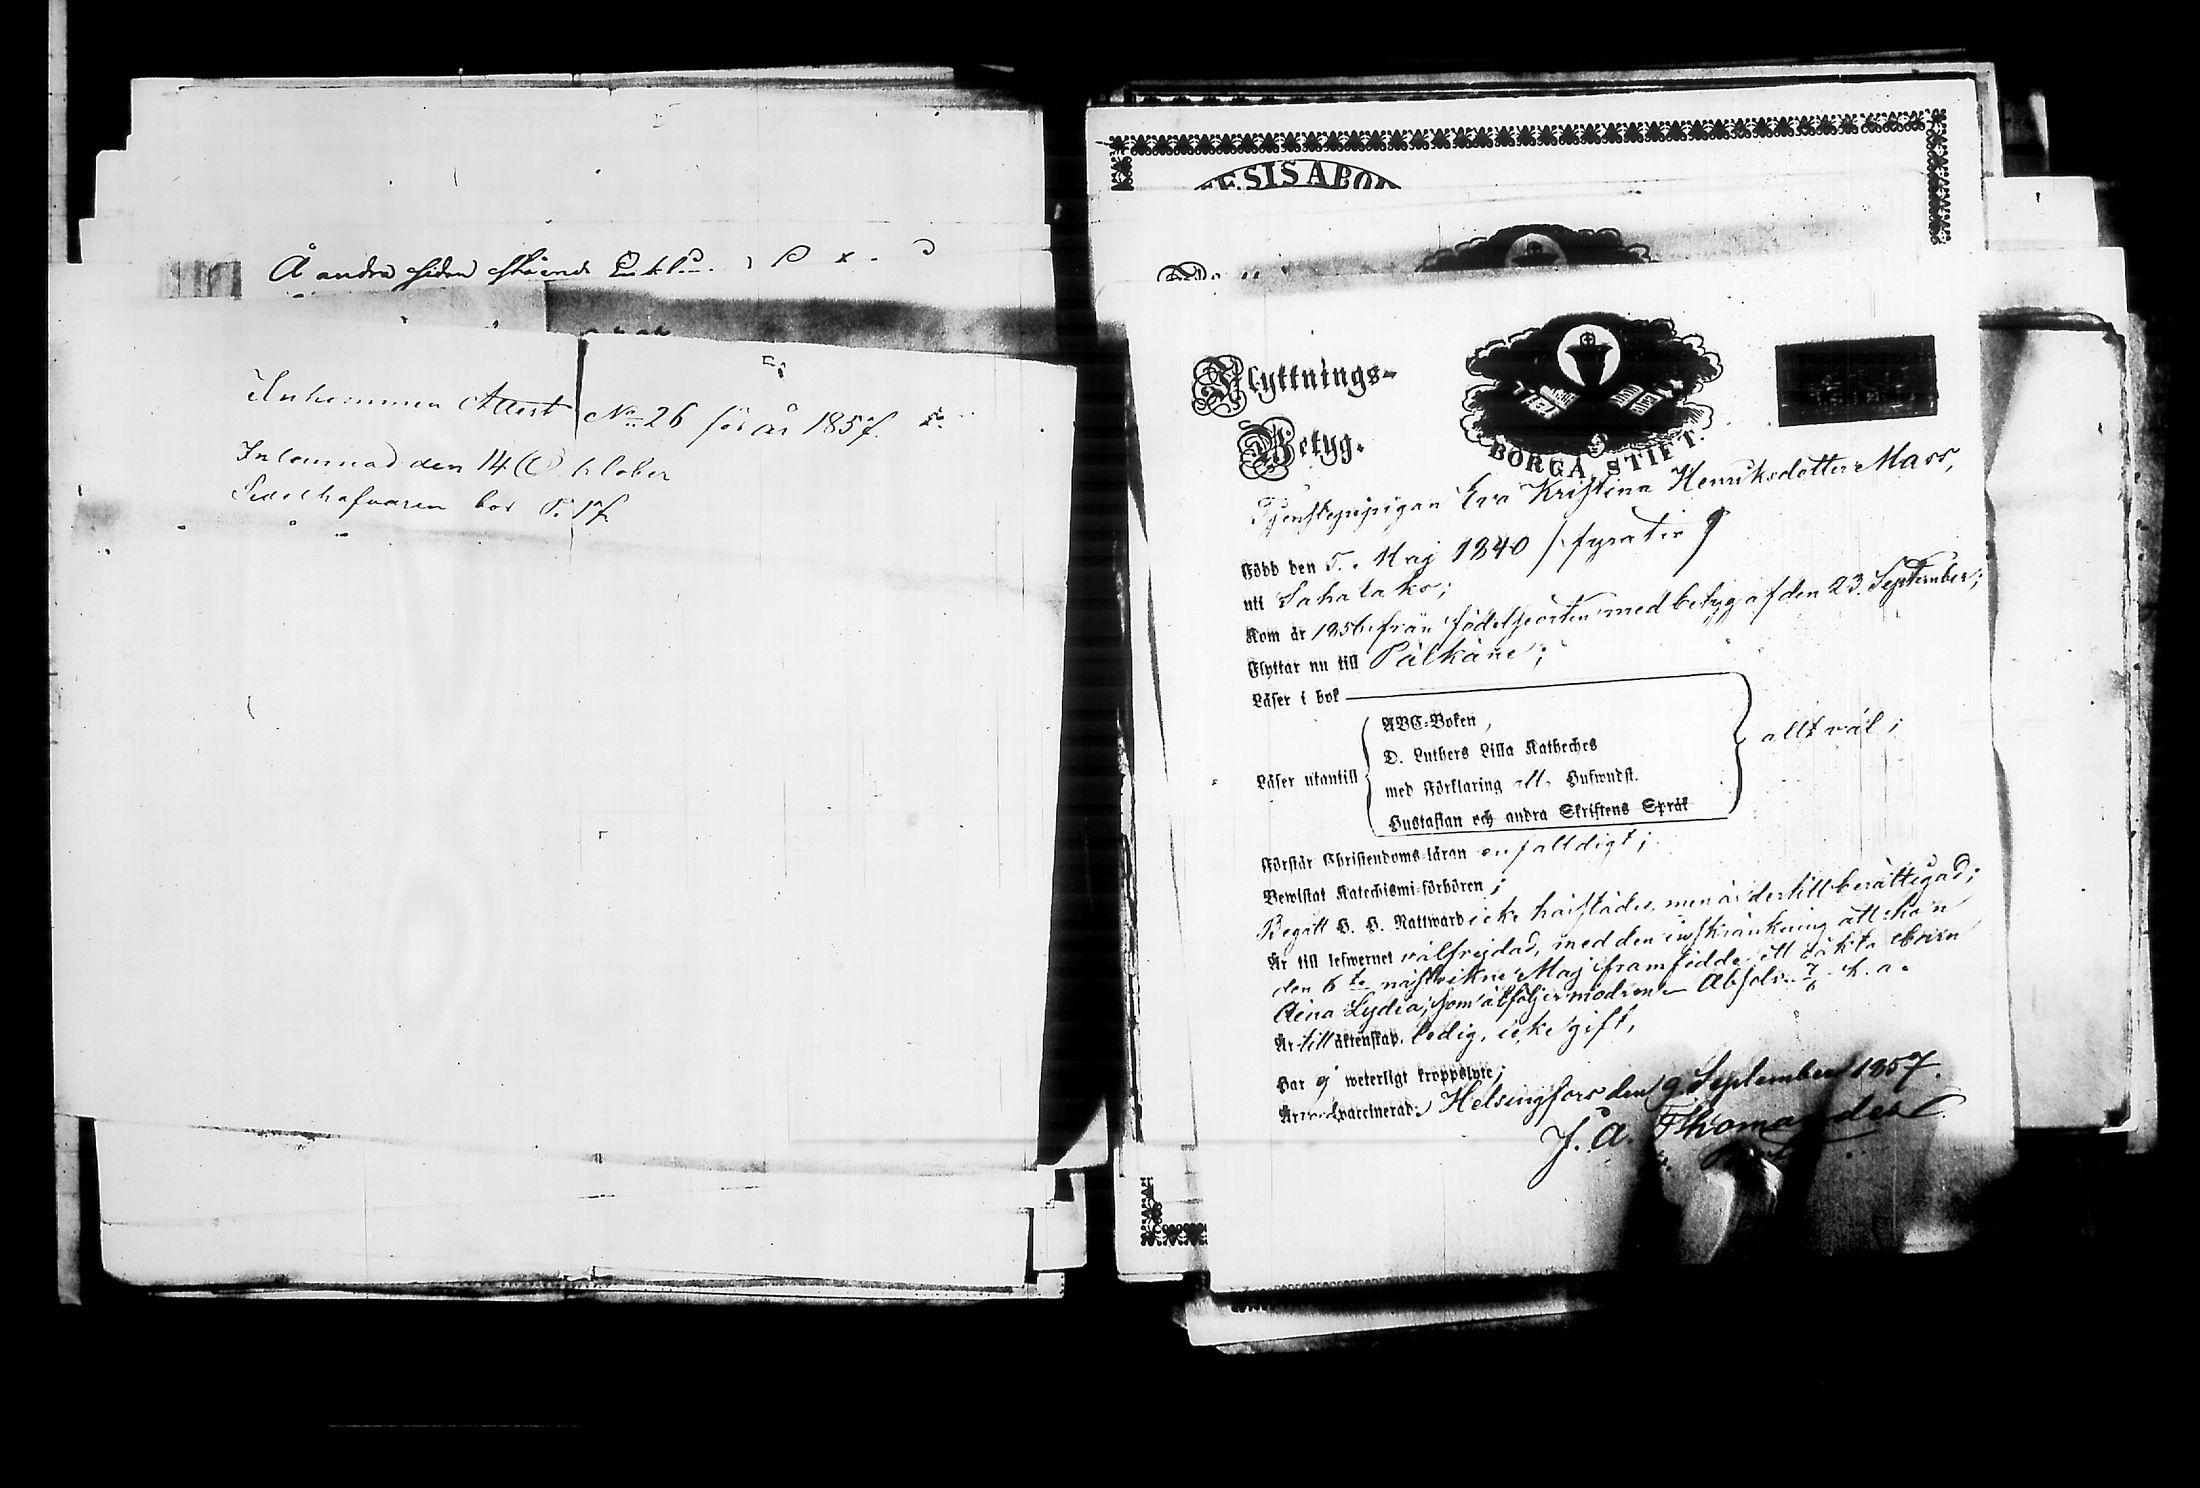 Å andra sidan stående
Inkommen Attest No 26 för år 1857.
Inlemnad den 14 Oktober
bor
ESIS ABO
Flyttnings-
Betyg.
BORGÅ STIFT.
Tjenstepigan Eva Kristina Henriksdotter Mass,
Född den 5. Maj 1840 /: fyratio
uti Sahalaks;
Kom år 1856 från födelseorten med betyg af den 23. September;
Flyttar nu till Pälkäne;
Läser i bok
ABC-Boken,
D. Luthers Lilla Katheches
allt väl;
Läser utantill
med Förklaring Huswudst.
Hustaflan och andra Skriftens Språk
Förstår Christendoms-läran enfalldigt;
Bewistat Katechismi-förhören;
Begått H. H. Nattward icke härstädes, men är dertill berättigad;
Är till lefwernet välfrejdad, med den inskränkning att hon
den 6te Maj framfödde ett oäkta barn
Aina Lydia, som åtföljer modren. Absolv. 7/6 h. a.
Är till äktenskap ledig, icke gift,
Har ej weterligt kroppslyte;
Är vaccinerad. Helsingfors den 9 September 1857.
J. A. Thomander